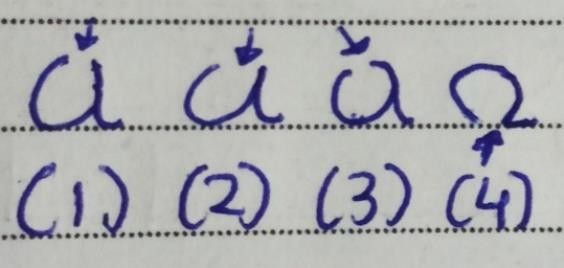 a a a a
(1) (2) (3) (4)